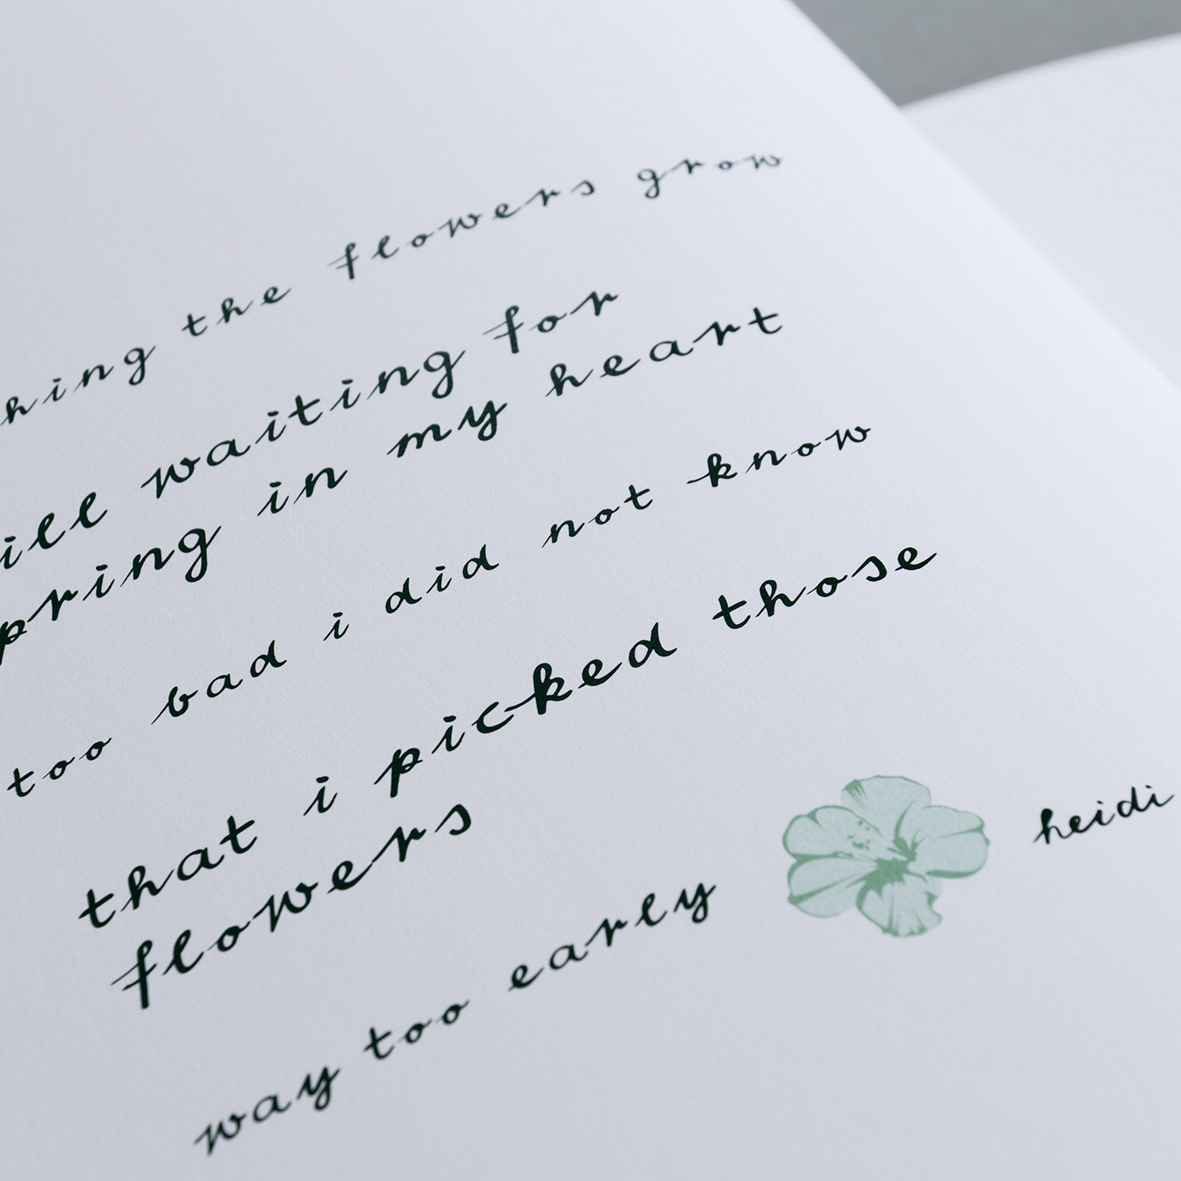 hing the flowers grow
ill waiting for
pring in my heart
too bad i did not know
that i picked those
flowers
way too early
heidi